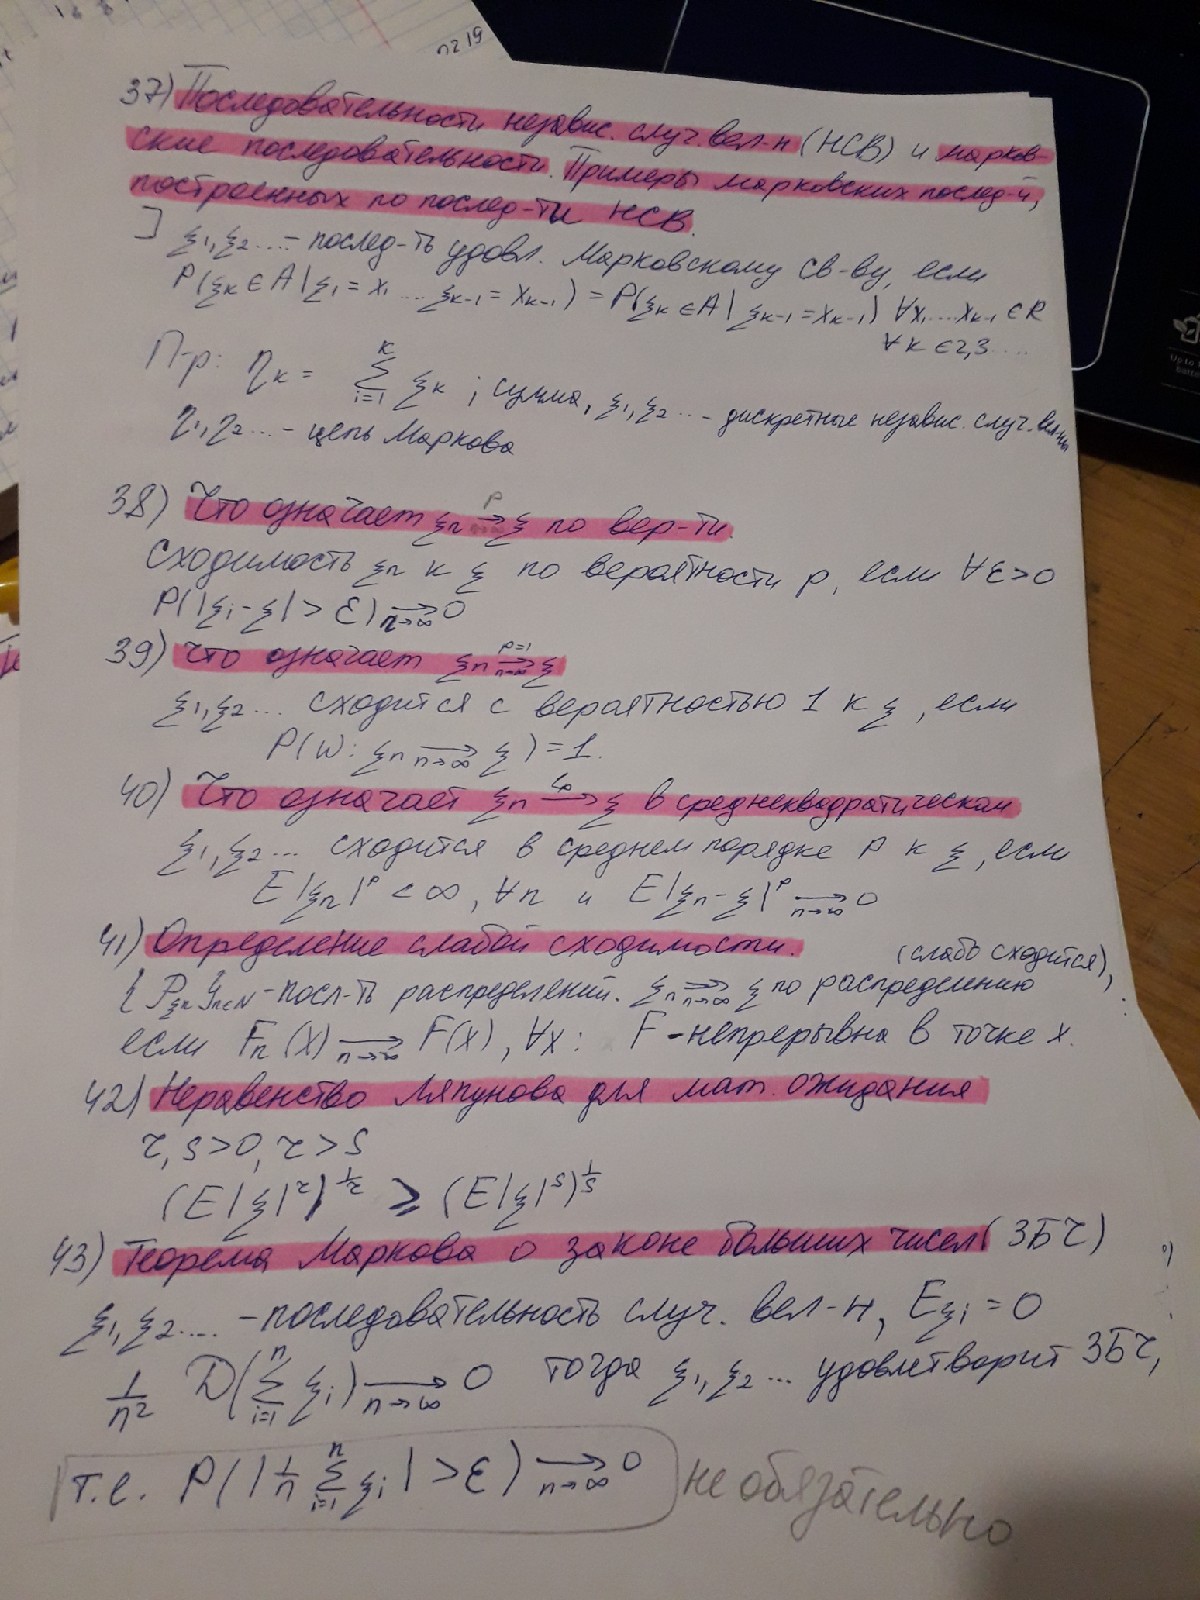 n2 19
37) Последовательности независ. случ. вел-н (НСВ) и марков-
ские последовательности. Примеры марковских послед-й,
построенных по послед-ти НСВ.
] ξ₁, ξ₂ ... - послед-ть удовл. Марковскому св-ву, если
P(ξₖ ∈ A | ξ₁ = x₁ ... ξₖ₋₁ = xₖ₋₁) = P(ξₖ ∈ A | ξₖ₋₁ = xₖ₋₁) ∀x₁....xₖ₋₁ ∈ R
∀k ∈ 2,3....
П-р: ηₖ = ∑ᵢ₌₁ᵏ ξₖ ; сумма, ξ₁, ξ₂ ... - дискретные независ. случ. вел-ны
η₁, η₂ ... - цепь Маркова
38) Что означает ξₙ →ᴾ ξ по вер-ти.
Сходимость ξₙ к ξ по вероятности p, если ∀ε>0
P(|ξᵢ - ξ| > ε) →ₙ→∞ 0
39) Что означает ξₙ →ᴾ⁼¹ₙ→∞ ξ
ξ₁, ξ₂ ... сходится с вероятностью 1 к ξ, если
P(ω: ξₙ →ₙ→∞ ξ) = 1.
40) Что означает ξₙ → ξ в среднеквадратическом
ξ₁, ξ₂ ... сходится в среднем порядке p к ξ, если
E|ξₙ|ᵖ < ∞, ∀n и E|ξₙ - ξ|ᵖ →ₙ→∞ 0
41) Определение слабой сходимости.
(слабо сходится),
{P_ξₙ}ₙ∈N - посл-ть распределений. ξₙ →ₙ→∞ ξ по распределению
если Fₙ(x) →ₙ→∞ F(x), ∀x: F - непрерывна в точке x.
42) Неравенство Ляпунова для мат. ожидания
r, s > 0, r > s
(E|ξ|ʳ)^(1/r) ⩾ (E|ξ|ˢ)^(1/s)
43) Теорема Маркова о законе больших чисел (ЗБЧ)
ξ₁, ξ₂ .... - последовательность случ. вел-н, Eξᵢ = 0
1/n² D(∑ᵢ₌₁ⁿ ξᵢ) →ₙ→∞ 0 тогда ξ₁, ξ₂ ... удовлетворит ЗБЧ,
т.е. P(|1/n ∑ᵢ₌₁ⁿ ξᵢ| > ε) →ₙ→∞ 0 не обязательно